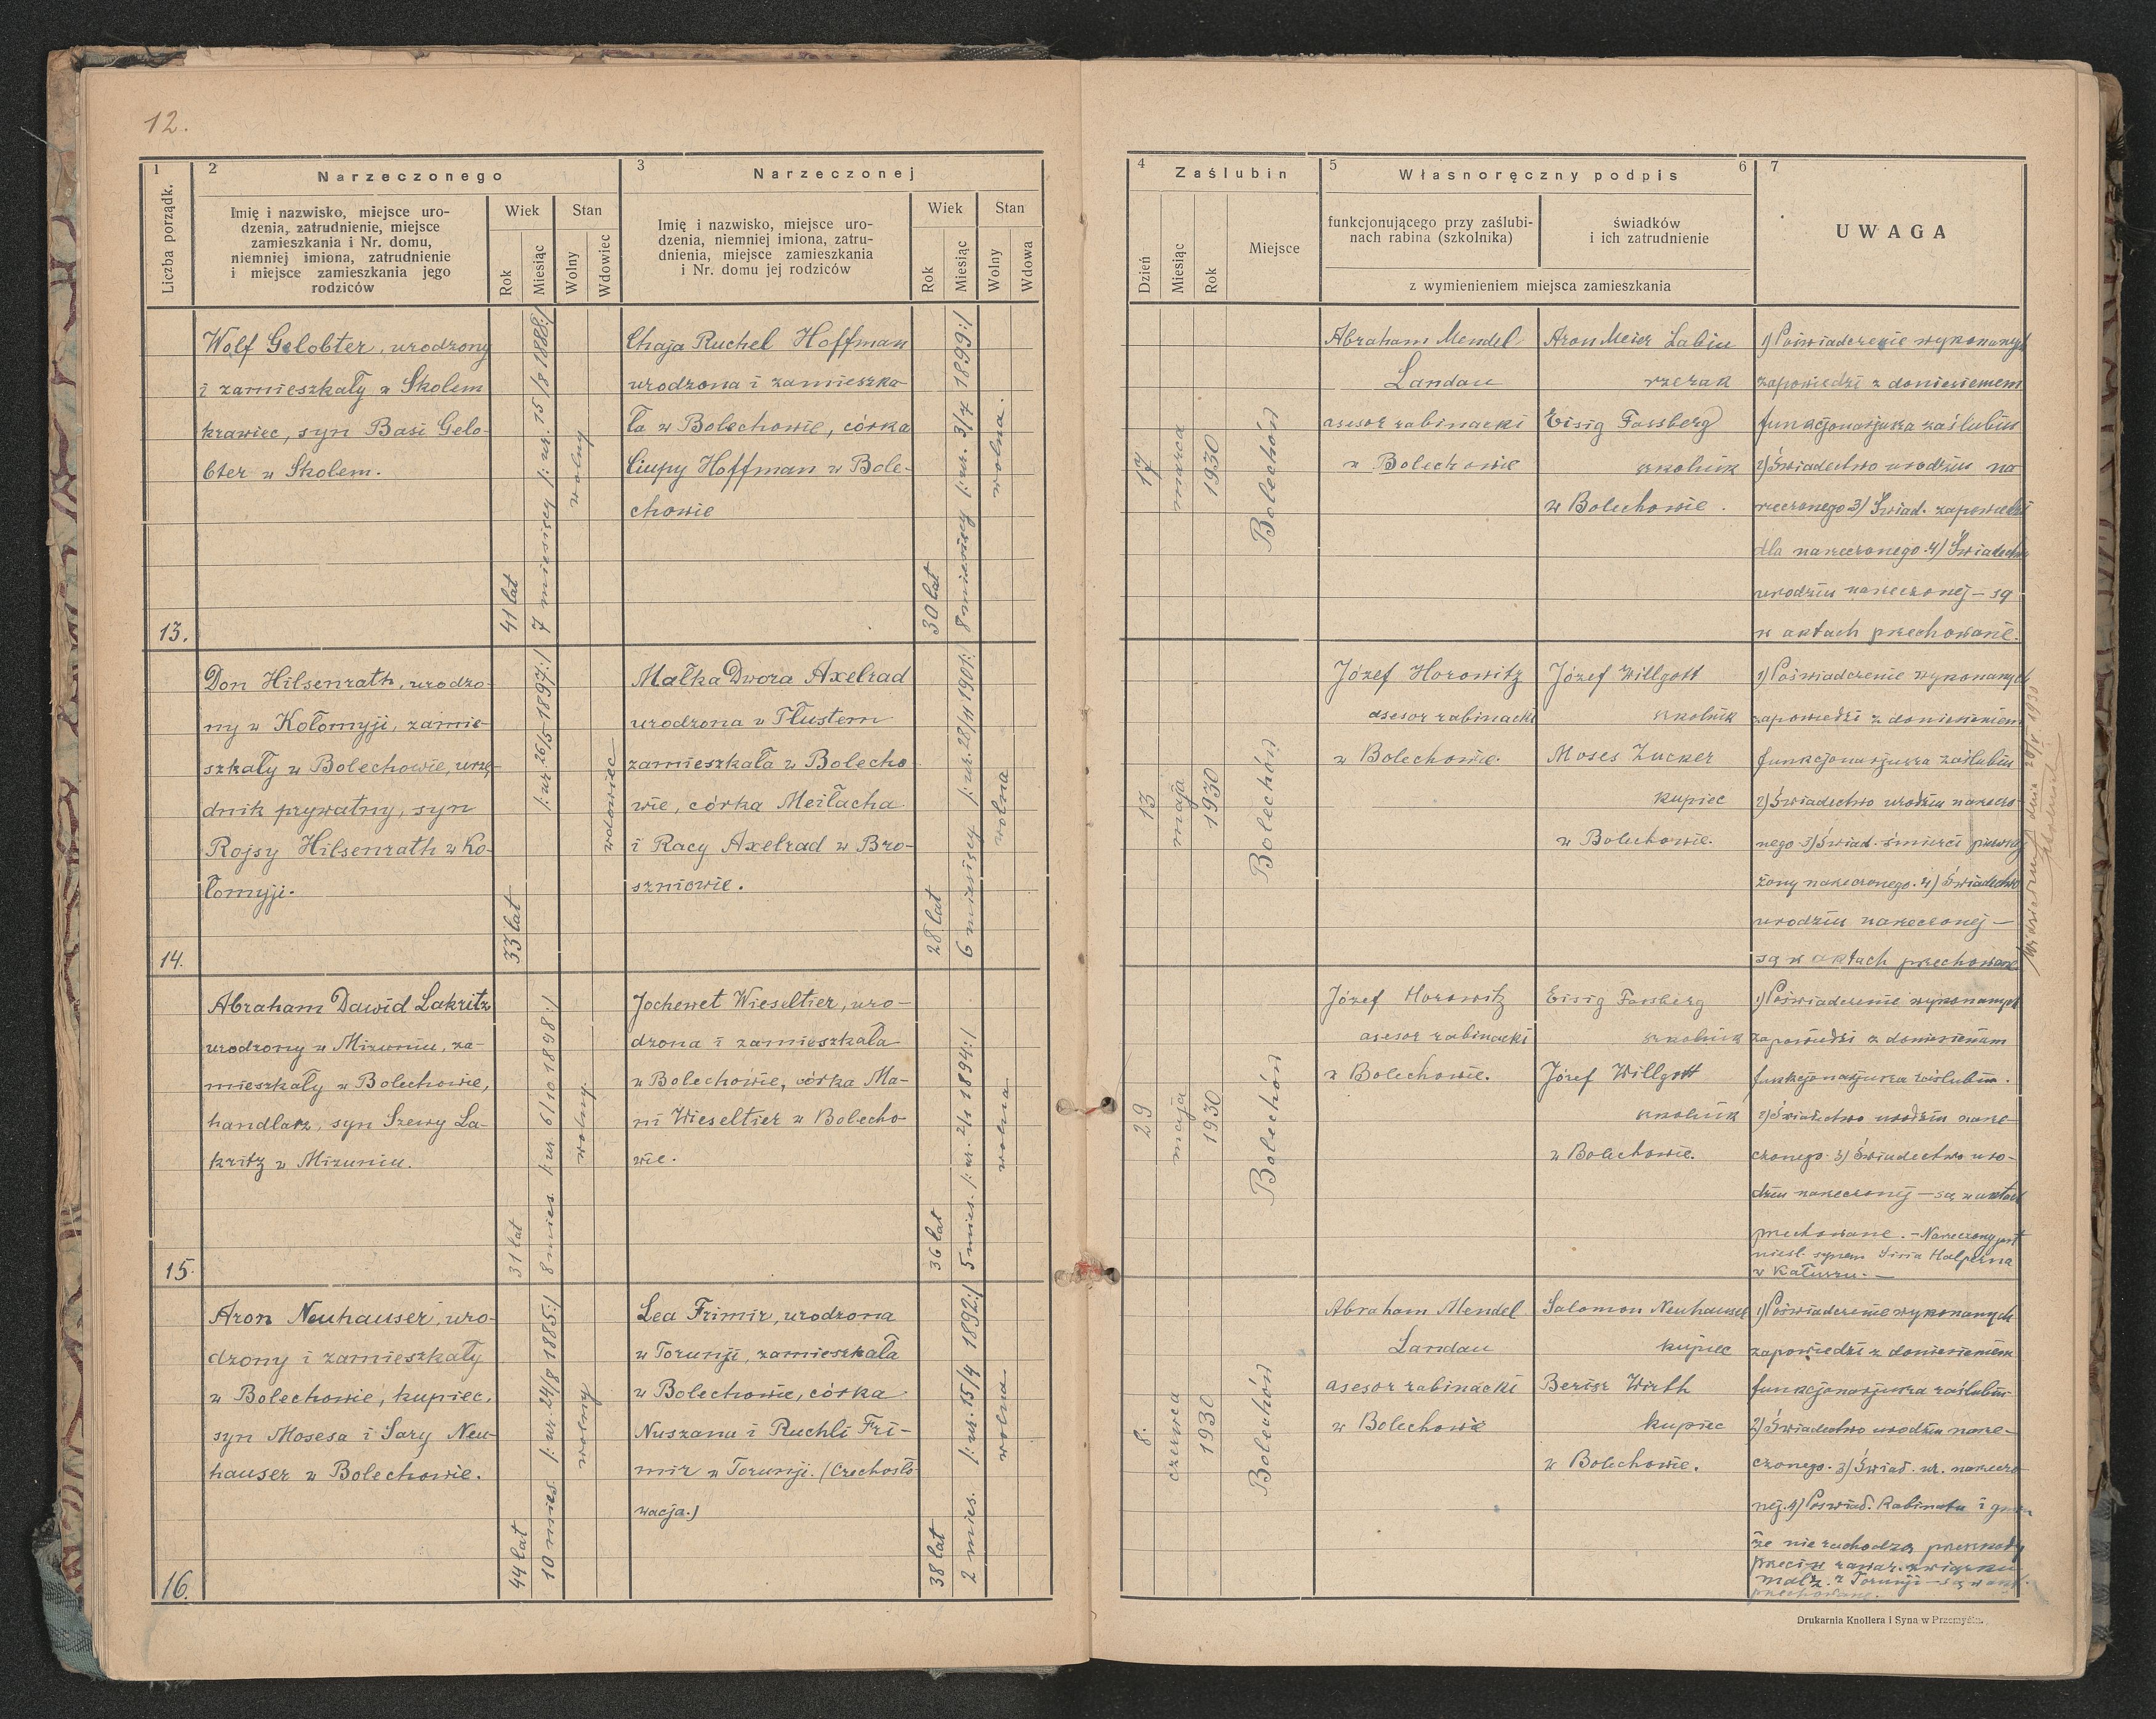 12.
1
2
Narzeczonego
3
Narzeczonej
Liczba porządk.
Imię i nazwisko, miejsce uro-
dzenia, zatrudnienie, miejsce
zamieszkania i Nr. domu,
niemniej imiona, zatrudnienie
i miejsce zamieszkania jego
rodziców
Wiek
Rok
Miesiąc
Stan
Wolny
Wdowiec
Imię i nazwisko, miejsce uro-
dzenia, niemniej imiona, zatru-
dnienia, miejsce zamieszkania
i Nr. domu jej rodziców
Wiek
Rok
Miesiąc
Stan
Wolny
Wdowa
13.
Wolf Gelobter, urodzony
i zamieszkały w Skolem
krawiec, syn Basi Gelo-
bter w Skolem.
41 lat
7 miesięcy /: ur. 15/8 1888:/
wolny
Chaja Ruchel Hoffman
urodzona i zamieszka-
ła w Bolechowie, córka
Ciupy Hoffman w Bole-
chowie
30 lat
8 miesięcy /: ur. 3/7 1899:/
wolna.
14.
Don Hilsenrath, urodzo-
ny w Kołomyji, zamie-
szkały w Bolechowie, urzę-
dnik prywatny, syn
Rojsy Hilsenrath w Ko-
łomyji.
33 lat
/: ur. 26/5 1897:/
wdowiec
Małka Dwora Axelrad
urodzona w Tłustem
zamieszkała w Bolecho
wie, córka Meilacha
i Racy Axelrad w Bro-
szniowie.
28 lat
6 miesięcy /: ur. 28/11 1901:/
wolna
15.
Abraham Dawid Lakritz
urodzony w Mizuniu, za-
mieszkały w Bolechowie,
handlarz, syn Szewy La-
kritz w Mizuniu.
31 lat
8 mies. /: ur 6/10 1898:/
wolny.
Jochewet Wieseltier, uro-
dzona i zamieszkała
w Bolechowie, córka Ma-
ni Wieseltier w Bolecho-
wie.
36 lat
5 mies. /: ur. 2/1 1894:/
wolna
16.
Aron Neuhauser, uro-
dzony i zamieszkały
w Bolechowie, kupiec,
syn Mosesa i Sary Neu-
hauser w Bolechowie.
44 lat
10 mies. /: ur. 24/8 1885:/
wolny
Lea Frimir, urodzona
w Torunji, zamieszkała
w Bolechowie, córka
Nuszana i Ruchli Fri-
mir w Torunji. (Czechosło-
wacja.)
38 lat
2 mies. /: ur. 15/4 1892:/
wolna
4
Zaślubin
5
Własnoręczny podpis
6
7
Dzień
Miesiąc
Rok
Miejsce
funkcjonującego przy zaślubi-
nach rabina (szkolnika)
świadków
i ich zatrudnienie
z wymienieniem miejsca zamieszkania
UWAGA
17
marca
1930
Bolechów
Abraham Mendel
Landau
asesor rabinacki
w Bolechowie
Aron Meier Labin
rzezak
Eisig Fassberg
szkolnik
w Bolechowie.
1) Poświadczenie wykonanych
zapowiedzi z doniesieniem
funkcjonarjusza zaślubin
2) Świadectwo urodzin na
rzeczonego 3) Świad. zapowiedzi
dla narzeczonego 4) Świadectwo
urodzin narzeczonej — są
w aktach przechowane.
13
maja
1930
Bolechów
Józef Horowitz
asesor rabinacki
w Bolechowie.
Józef Willgott
szkolnik
Moses Zucker
kupiec
w Bolechowie.
1) Poświadczenie wykonanych
zapowiedzi z doniesieniem
funkcjonarjusza zaślubin
2) Świadectwo urodzin narzeczo-
nego 3) Świad. śmierci pierwszej
żony narzeczonego. 4) Świadectwo
urodzin narzeczonej —
są w aktach przechowane
29
maja
1930
Bolechów
Józef Horowitz
asesor rabinacki
w Bolechowie.
Eisig Fassberg
szkolnik
Józef Willgott
szkolnik
w Bolechowie.
1) Poświadczenie wykonanych
zapowiedzi z doniesieniem
funkcjonarjusza zaślubin.
2) Świadectwo urodzin narze-
czonego. 3) Świadectwo uro-
dzin narzeczonej — są w aktach
przechowane. — Narzeczony jest
nieśl. synem Halperna
w Kałuszu. —
8.
czerwca
1930
Bolechów
Abraham Mendel
Landau
asesor rabinacki
w Bolechowie
Salomon Neuhauser
kupiec
Berisz Wirth
kupiec
w Bolechowie.
1) Poświadczenie wykonanych
zapowiedzi z doniesieniem
funkcjonarjusza zaślubin.
2) Świadectwo urodzin narze-
czonego. 3) Świad. ur. narzeczo-
nej. 4) Poświad. Rabinatu i
że nie zachodzą przeszkody
przeciw zawar. związku
małż. z Torunji — są w akt.
przechowane.
Drukarnia Knollera i Syna w Przemyślu.